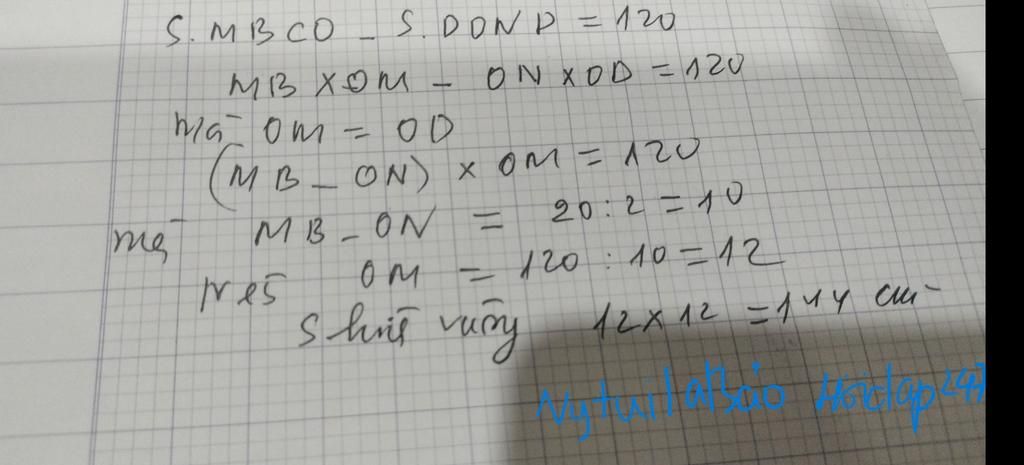 S.MBCO - S.DOND = 120
MB x OM - ON x OD = 120
mà OM = OD
(MB - ON) x OM = 120
mà MB - ON = 20 : 2 = 10
nên OM = 120 : 10 = 12
S hình vuông 12 x 12 = 144 cm
NytuilaBáo Hoidap247